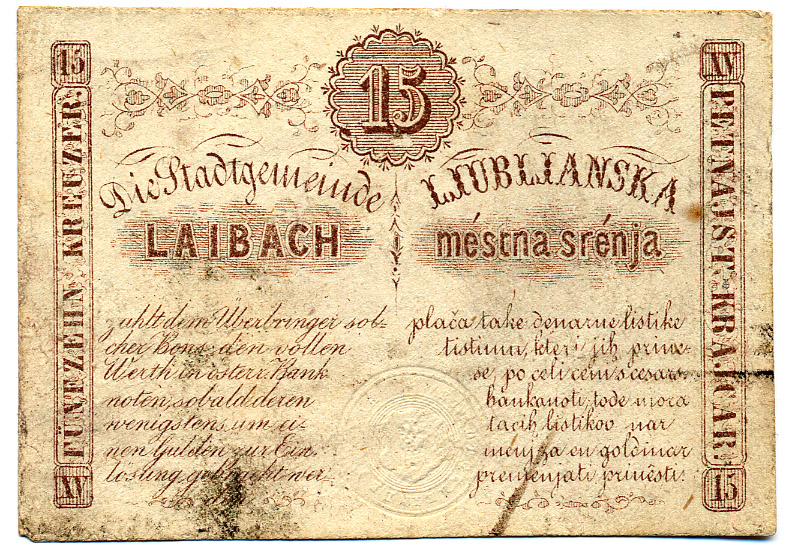 15
15
XV
FÜNFZEHN KREUZER.
PETNAJST KRAJCAR.
Die Stadtgemeinde
LAIBACH
zahlt dem Überbringer sol-
cher Bons, den vollen
Werth in österr. Bank
noten, sobald deren
wenigstens um ei-
nen Gulden zur Ein-
lösung gebracht wer-
LJUBLJANSKA
méstna srénja
plača take denarne listike
tistimu, kteri jih prinse-
se, po celi ceni s'cesars.
bankanoti, tode mora
tacih listikov nar
menj za en goldinar
premenjati prinésti.
XV
15